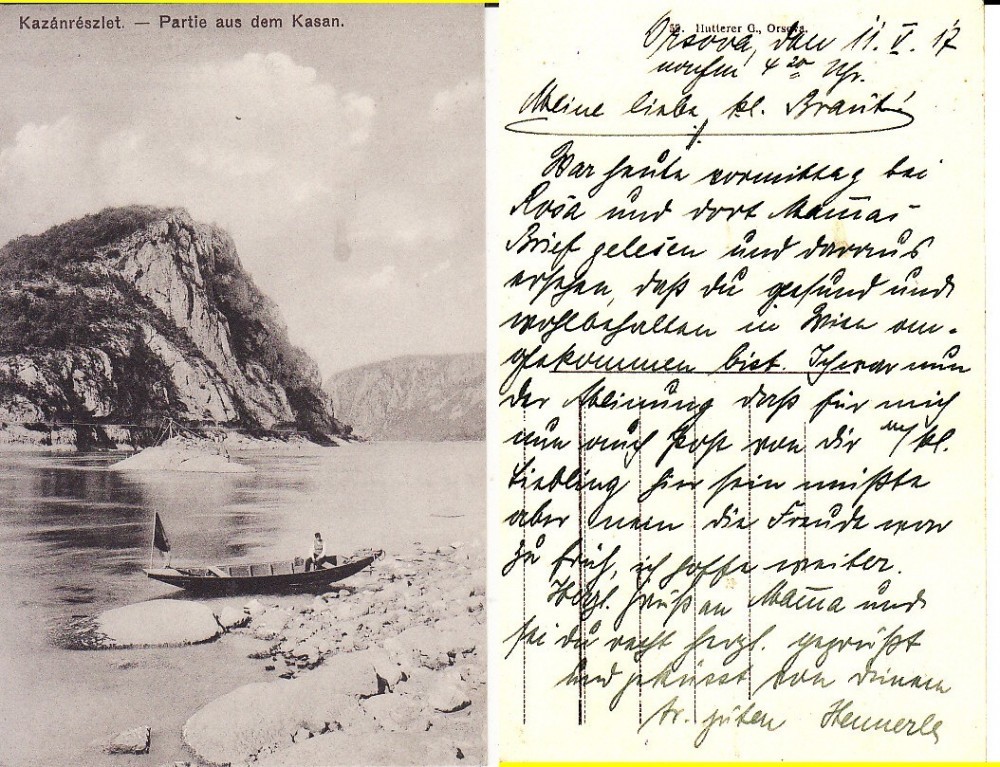 Kazánrészlet. — Partie aus dem Kasan.
59. Hutterer G., Orsova.
Orsova, den 11. V. 17
nachm 4 20 Uhr.
Meine liebe, kl. Braut!
War heute vormittag bei
Rosa und dort Mamas
Brief gelesen und daraus
ersehen, daß du gesund und
wohlbehalten in Wien an-
gekommen bist. Ich war nun
der Meinung daß für mich
nun auch Post von dir kl.
Liebling hier sein müßte
aber nein die Freude war
zu früh, ich hoffe weiter.
Herzl. Gruß an Mama und
sei du recht herzl. gegrüßt
und geküsst von deinem
tr. guten Hennerle